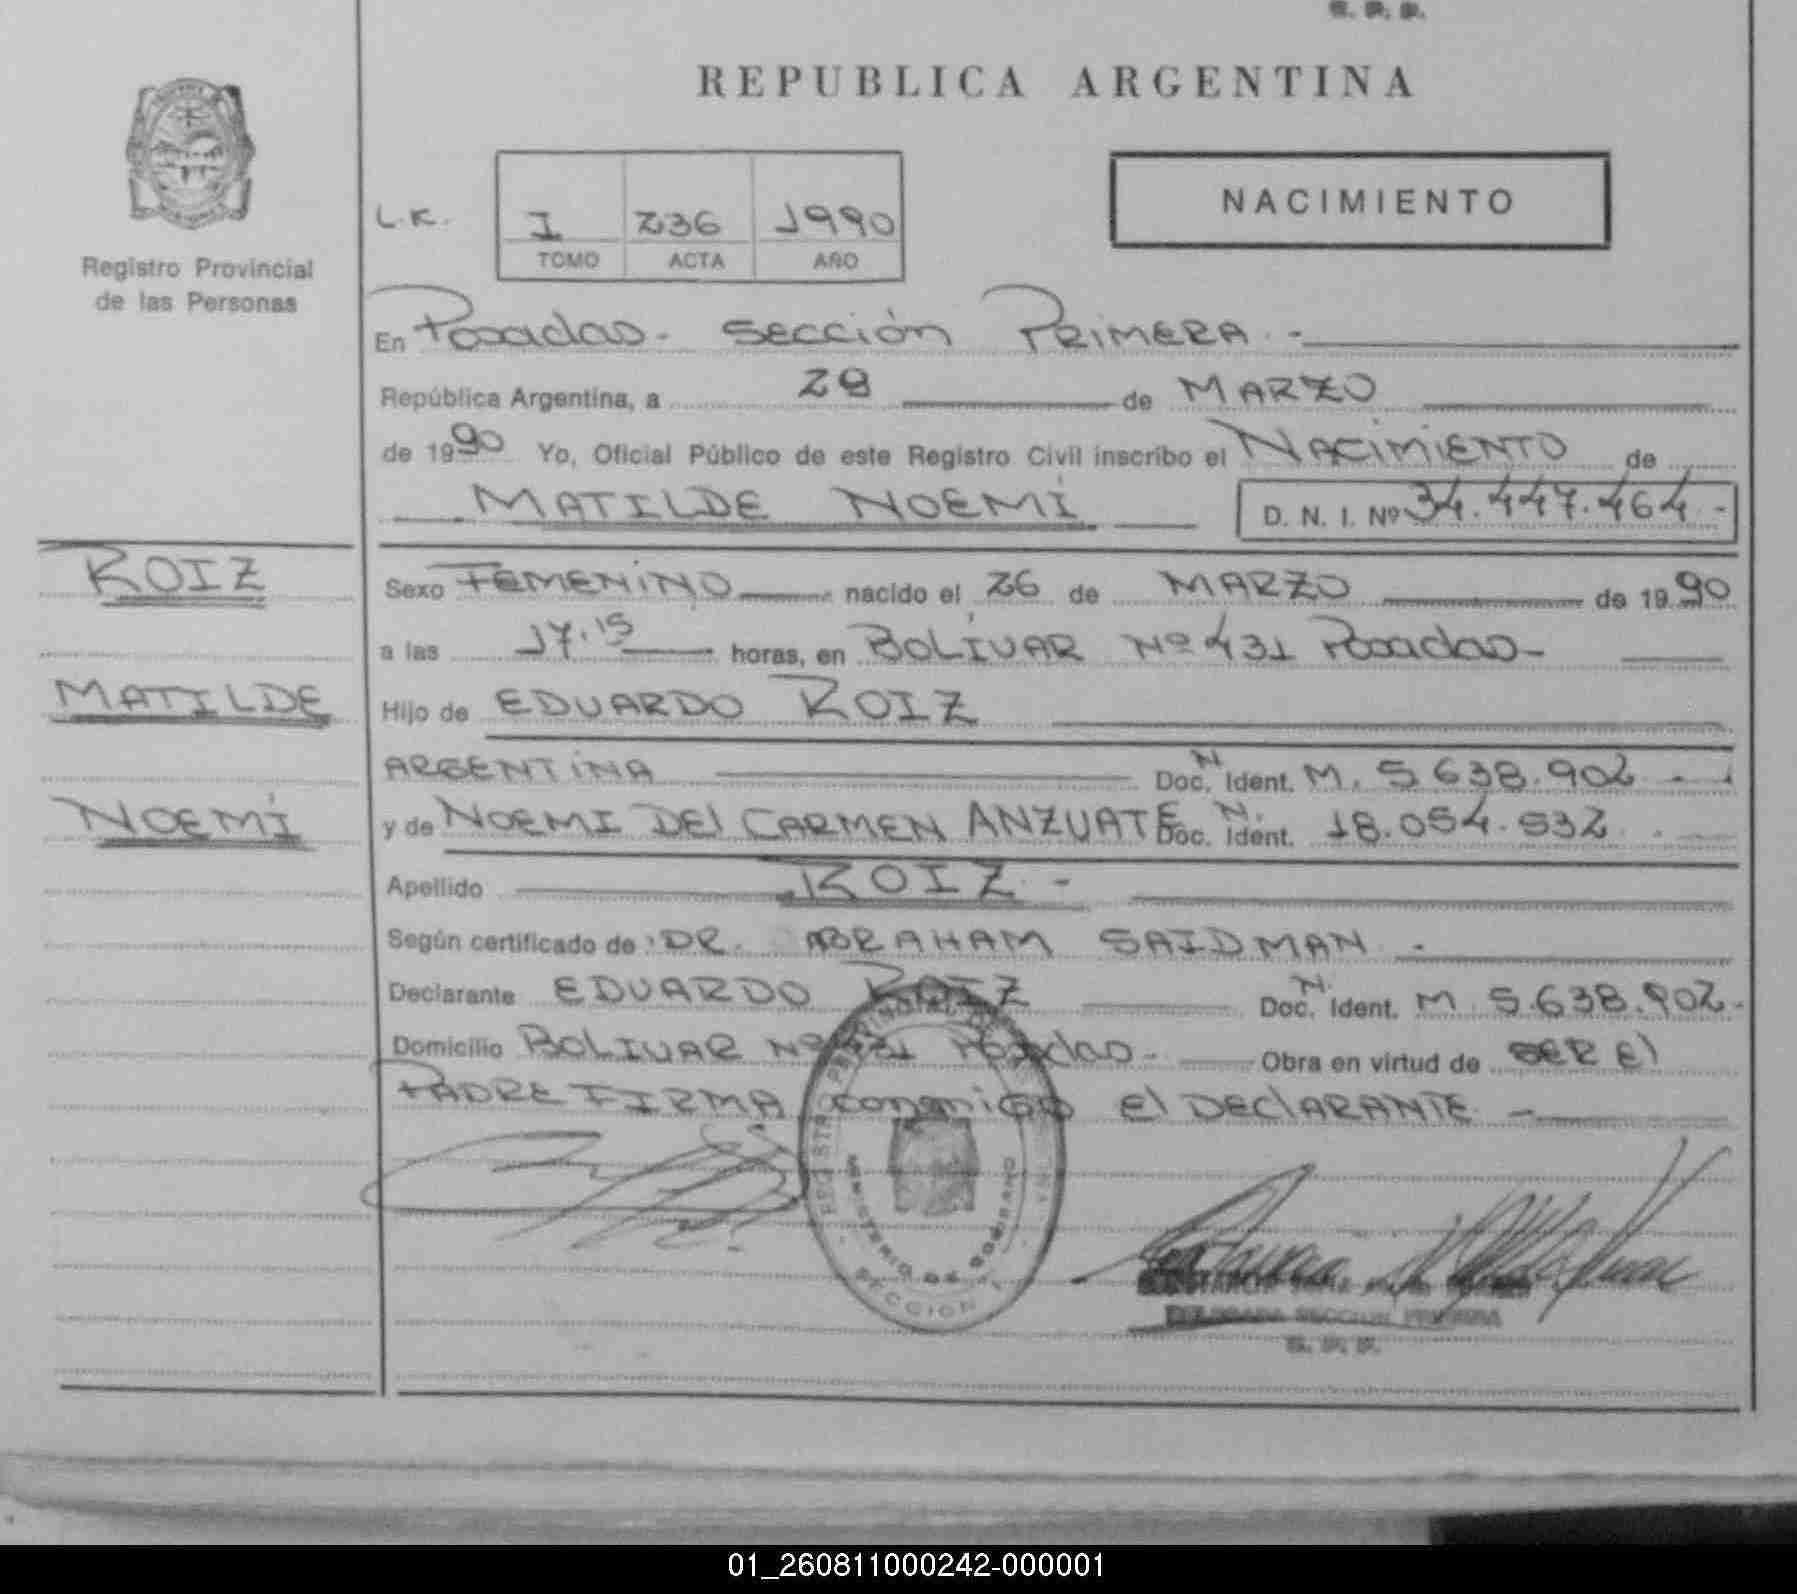 G. P. P.
REPUBLICA ARGENTINA
NACIMIENTO
L.K. I 236 1990
TOMO ACTA AÑO
Registro Provincial
de las Personas
En Posadas - Sección PRIMERA.-
República Argentina, a 28 de MARZO
de 1990 Yo, Oficial Público de este Registro Civil inscribo el NACIMIENTO de
MATILDE NOEMÍ D. N. I. Nº 34.447.464.-
ROIZ
MATILDE
NOEMÍ
Sexo FEMENINO nacido el 26 de MARZO de 1990
a las 17.15 horas, en BOLÍVAR Nº 431 Posadas-
Hijo de EDUARDO ROIZ
ARGENTINA Doc. N. Ident. M. 5.638.902.-
y de NOEMI DEl CARMEN ANZUATE Doc. N. Ident. 18.054.532.
Apellido ROIZ.-
Según certificado de DR. ABRAHAM SAIDMAN.-
Declarante EDUARDO ROIZ Doc. N. Ident. M. 5.638.902.-
Domicilio BOLIVAR Nº 431 Posadas.- Obra en virtud de SER El
PADRE FIRMA conmigo El DEClARANTE.-
REGISTRO PROVINCIAL DE
MINISTERIO DE GOBIERNO
SECCION 1
DELEGADA SECCION PRIMERA
G. P. P.
01_260811000242-000001